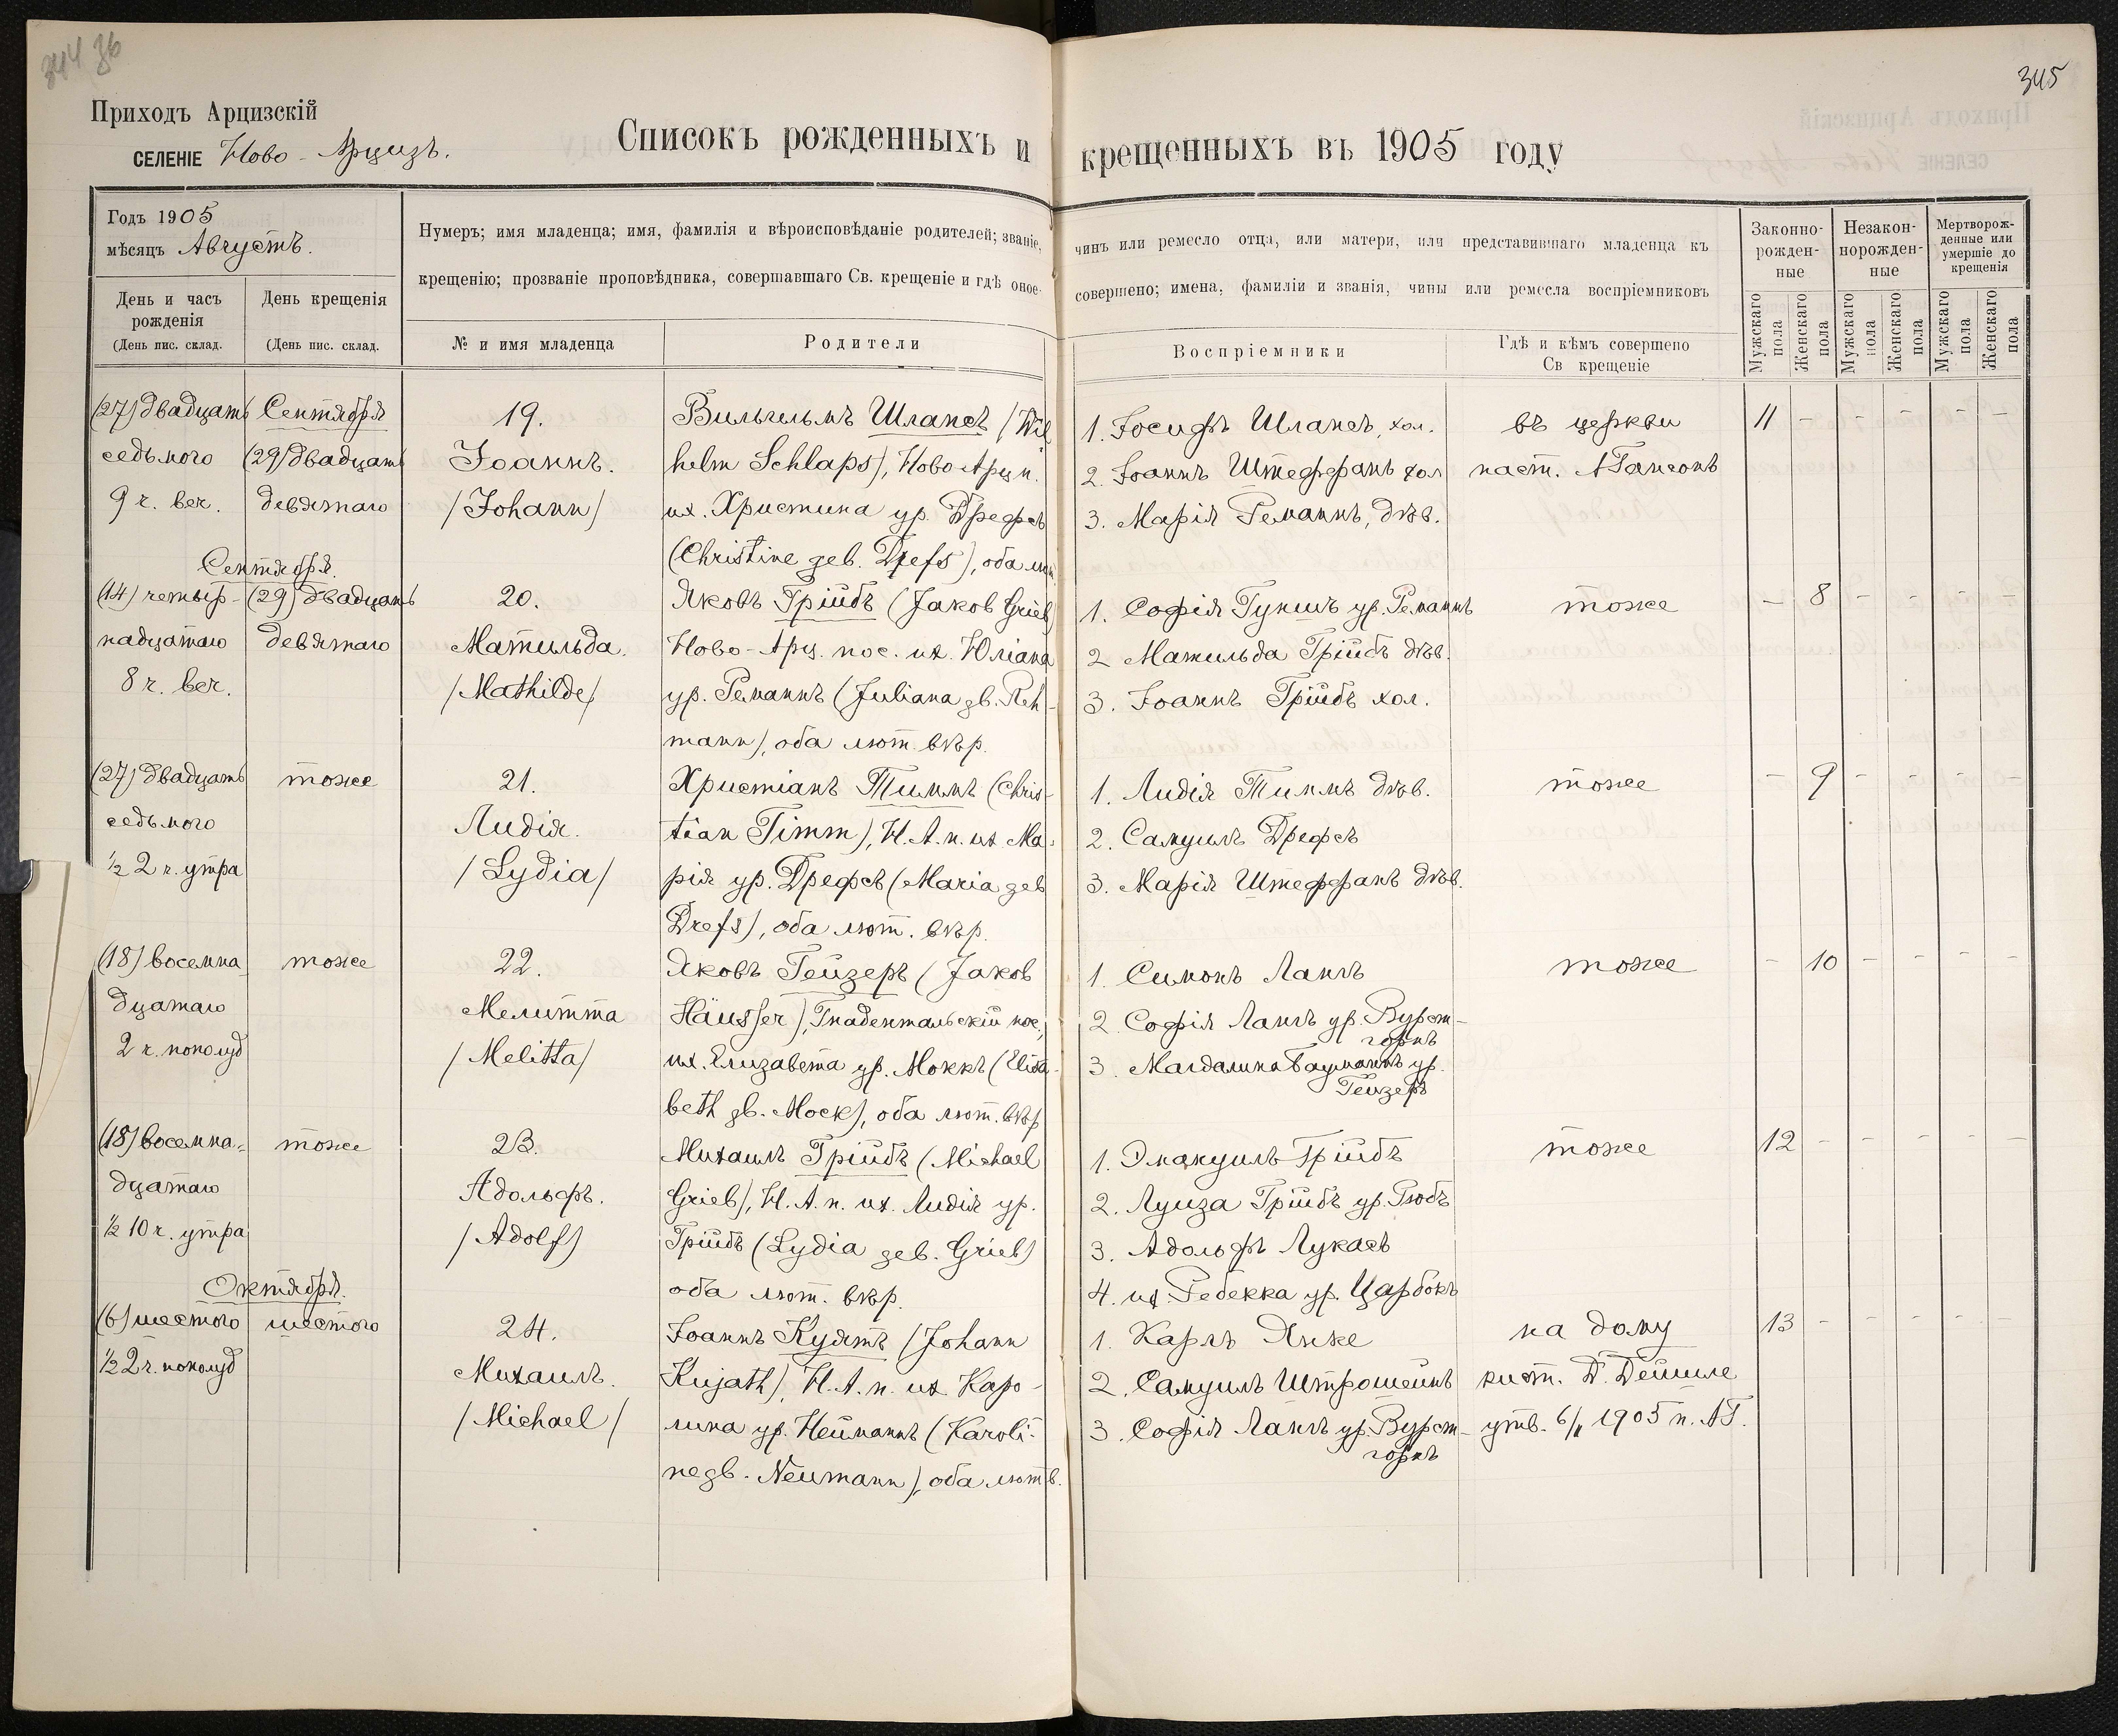 344 36
345
Приходъ Арцизскій
СЕЛЕНІЕ Ново-Арцизъ.
Списокъ рожденныхъ и крещенныхъ въ 1905 году
Годъ 1905
мѣсяцъ Августъ.
День и часъ
рожденія
(День пис. склад.
День крещенія
(День пис. склад.
Нумеръ; имя младенца; имя, фамилія и вѣроисповѣданіе родителей; званіе, чинъ или ремесло отца, или матери, или представившаго младенца къ
крещенію; прозваніе проповѣдника, совершавшаго Св. крещеніе и гдѣ оное совершено; имена, фамиліи и званія, чины или ремесла воспріемниковъ
№ и имя младенца
Родители
Воспріемники
Гдѣ и кѣмъ совершено
Св крещеніе
Законно-
рожден-
ные
Незакон-
норожден-
ные
Мертворож-
денные или
умершіе до
крещенія
Мужскаго пола
Женскаго пола
Мужскаго пола
Женскаго пола
Мужскаго пола
Женскаго пола
(27) двадцать
седьмого
9 ч. веч.
Сентября
(29) двадцать
девятаго
19.
Іоаннъ.
/Johann/
Вильгельмъ Шлапсъ (Wil
helm Schlaps), Ново Арц п.
их. Христина ур. Дрефсъ
(Christine geb. Drefs), оба лют.
1. Іосифъ Шлапсъ, хол.
2. Іоаннъ Штеффанъ хол
3. Марія Реманнъ, дѣв.
въ церкви
паст. А Гансонъ
11 - - - - -
Сентября.
(14) четыр-
надцатаго
8 ч. веч.
(29) двадцать
девятаго
20.
Матильда.
/Mathilde/
Яковъ Гріибъ (Jakob Grieb)
Ново-Арц. пос. их. Юліана
ур. Реманнъ (Juliana gb. Reh-
mann), оба лют. вѣр.
1. Софія Гукишъ ур. Реманнъ
2 Матильда Гріибъ дѣв.
3. Іоаннъ Гріибъ хол.
тоже
- 8 - - - -
(27) двадцать
седьмого
½ 2 ч. утра
тоже
21.
Лидія.
/Lydia/
Христіанъ Тиммъ (Chris-
tian Timm), Н. А. п. их Ма-
рія ур. Дрефсъ (Maria geb
Drefs), оба лют. вѣр.
1. Лидія Тиммъ дѣв.
2. Самуилъ Дрефсъ
3. Марія Штеффанъ дѣв.
тоже
- 9 - - - -
(18) восемна
дцатаго
2 ч. пополуд
тоже
22.
Мелитта
/Melitta/
Яковъ Гейзеръ (Jakob
Häusser), Гнадентальскій пос.,
их. Елизавета ур. Моккъ (Elisa-
beth gb. Mock), оба лют. вѣр
1. Симонъ Лангъ
2. Софія Лангъ ур. Вурст-
горнъ
3. Магдалина Бауманнъ ур.
Гейзеръ
тоже
- 10 - - - -
(18) восемна-
дцатаго
½ 10 ч. утра
тоже
23.
Адольфъ.
/Adolf/
Михаилъ Гріибъ (Michael
Grieb), Н. А. п. их. Лидія ур.
Гріибъ (Lydia geb. Grieb)
оба лют. вѣр.
1. Эмануилъ Гріибъ
2. Луиза Гріибъ ур. Гюбъ
3. Адольфъ Лукасъ
4. их. Ребекка ур. Царбокъ
тоже
12 - - - - -
Октября.
(6) шестого
½ 2 ч. пополуд
шестого
24.
Михаилъ.
/Michael/
Іоаннъ Куятъ (Johann
Kujath), Н. А. п. их Каро-
лина ур. Нейманнъ (Karoli-
ne gb. Neumann), оба лют в.
1. Карлъ Янке
2. Самуилъ Штрошейнъ
3. Софія Лангъ ур. Вурст-
горнъ
на дому
кист. Д. Дейшле
утв. 6/11 1905 п. АГ.
13 - - - - -